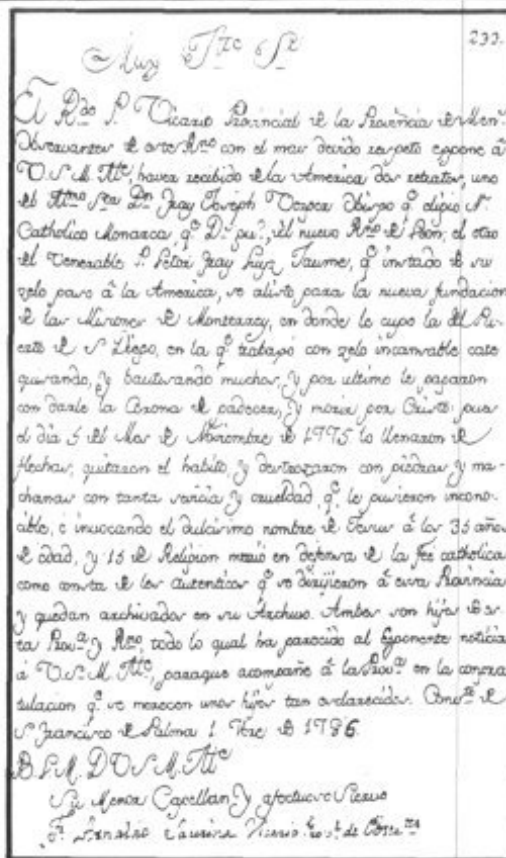 233.
Muy Itte Sr
El Rdo P. Vicario Provincial de la Provincia de Men.s
Observantes de este Rno con el mas devido respeto espone â
V. S. M. Itte haver recibido de la America dos retratos, uno
del Iltmo Sor Dn Fray Joseph Obispo q.e eligio N.
Catholico Monarca, q.e D.s gu.e, del nuevo Rno de León; el otro
del Venerable P. Letor Fray Luys Jaume, q.e invitado de su
zelo paso â la America, se alistó para la nueva fundacion
de las Misiones de Monterrey, en donde le cupo la del Pu-
erto de S. Diego, en la q.e trabajó con zelo incansable cate
quizando, y bautizando muchos, y por ultimo le pagaron
con darle la Corona de padecer, y morir por Cristo: pues
el dia 5 del Mes de Noviembre de 1775 lo llenaron de
flechas, quitaron el habito, y destrozaron con piedras y ma-
chanas con tanta sevicia y crueldad, q.e le pusieron incono-
cible, é invocando el dulcisimo nombre de Jesus â los 35 años
de edad, y 15 de Religion murió en defensa de la fee catholica
como consta de los autenticos q.e se dirijieron â esta Provincia
y quedan archivados en su Archivo. Ambos son hijos de es-
ta Prov.a y Rno todo lo qual ha parecido al Esponente noticiâ
â V. S. M. Itte, paraque acompañe â la Prov.a en la congra
tulacion q.e se merecen unos hijos tan esclarecidos. Conv.to de
S. Francisco de Palma 1 de 1786.
B. L. M. D V S M. Itte
Su Menor Capellan y afectuoso Siervo
Fr. Vicario de